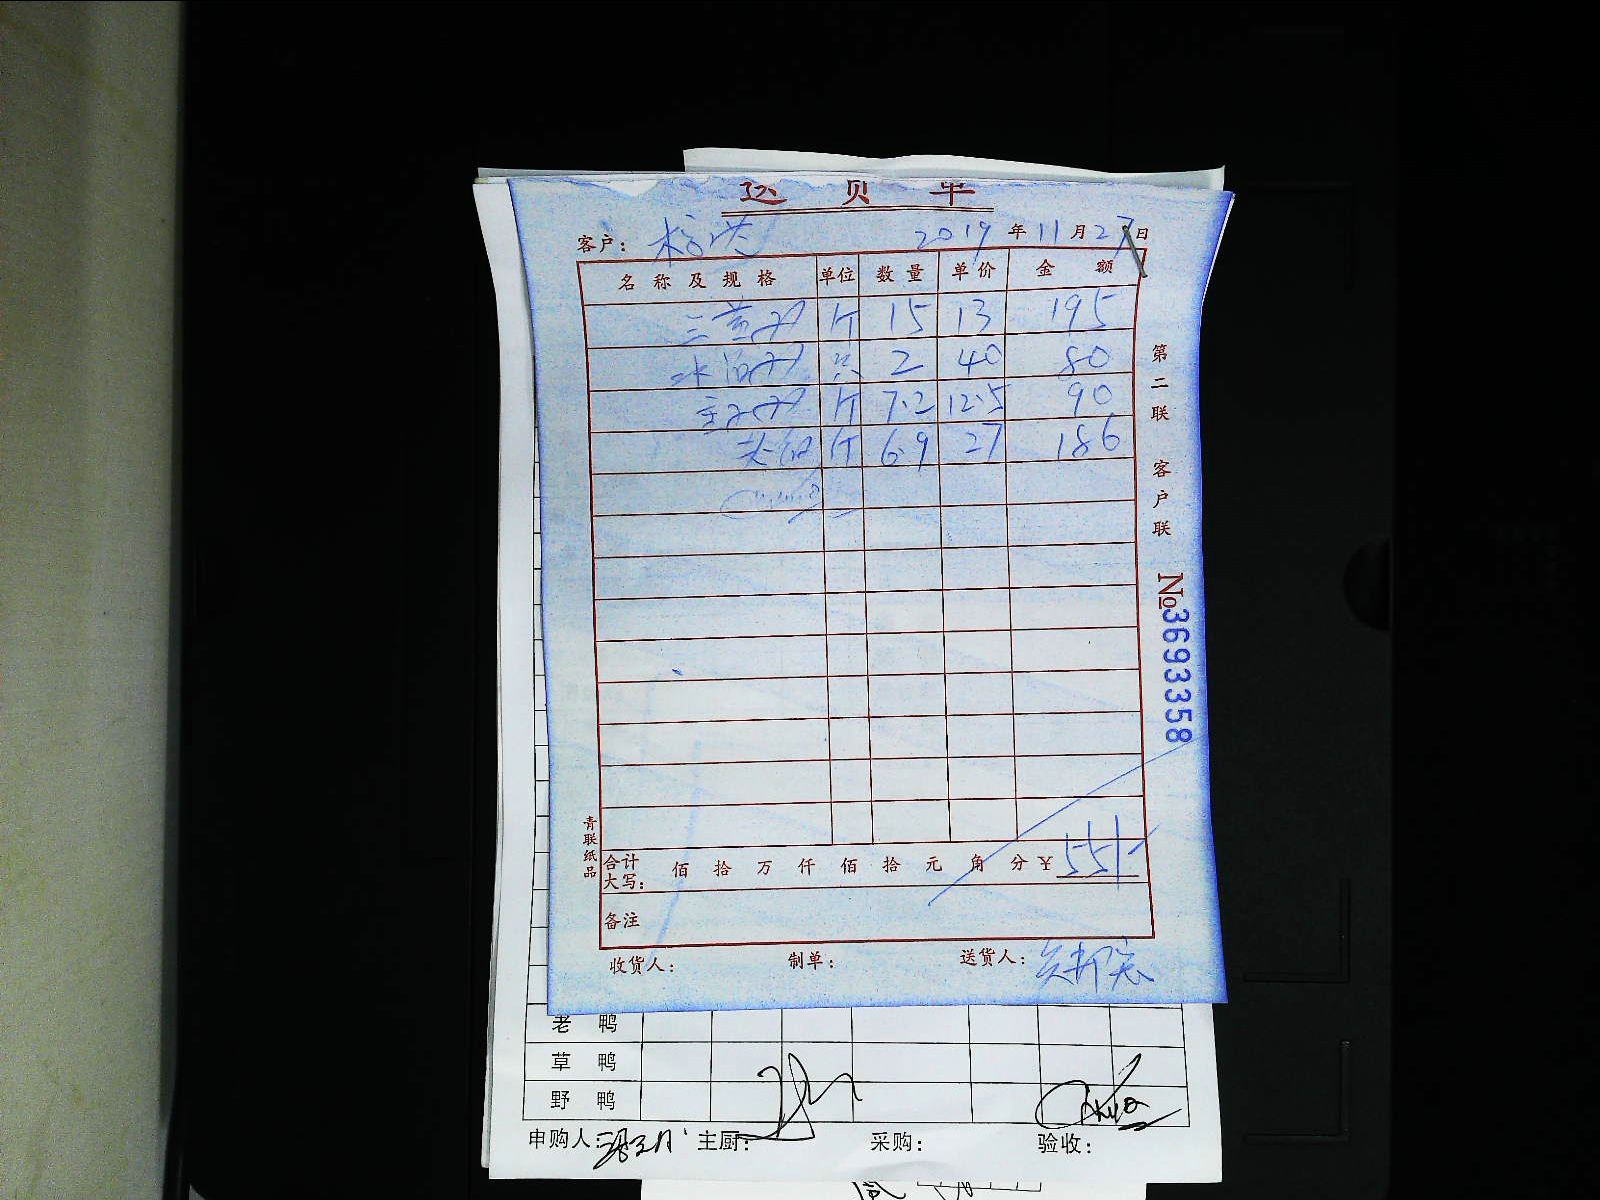 送 货 单
客户： 2019 年 11 月 27 日
名 称 及 规 格 单位 数 量 单 价 金 额
三黄 斤 15 13 195
只 2 40 80
斤 7.2 12.5 90
斤 6.9 27 186
第二联 客户联
№3693358
青联纸品
合计大写： 佰 拾 万 仟 佰 拾 元 角 分 ¥ 551
备注
收货人： 制单： 送货人：
老 鸭
草 鸭
野 鸭
申购人： 主厨： 采购： 验收：